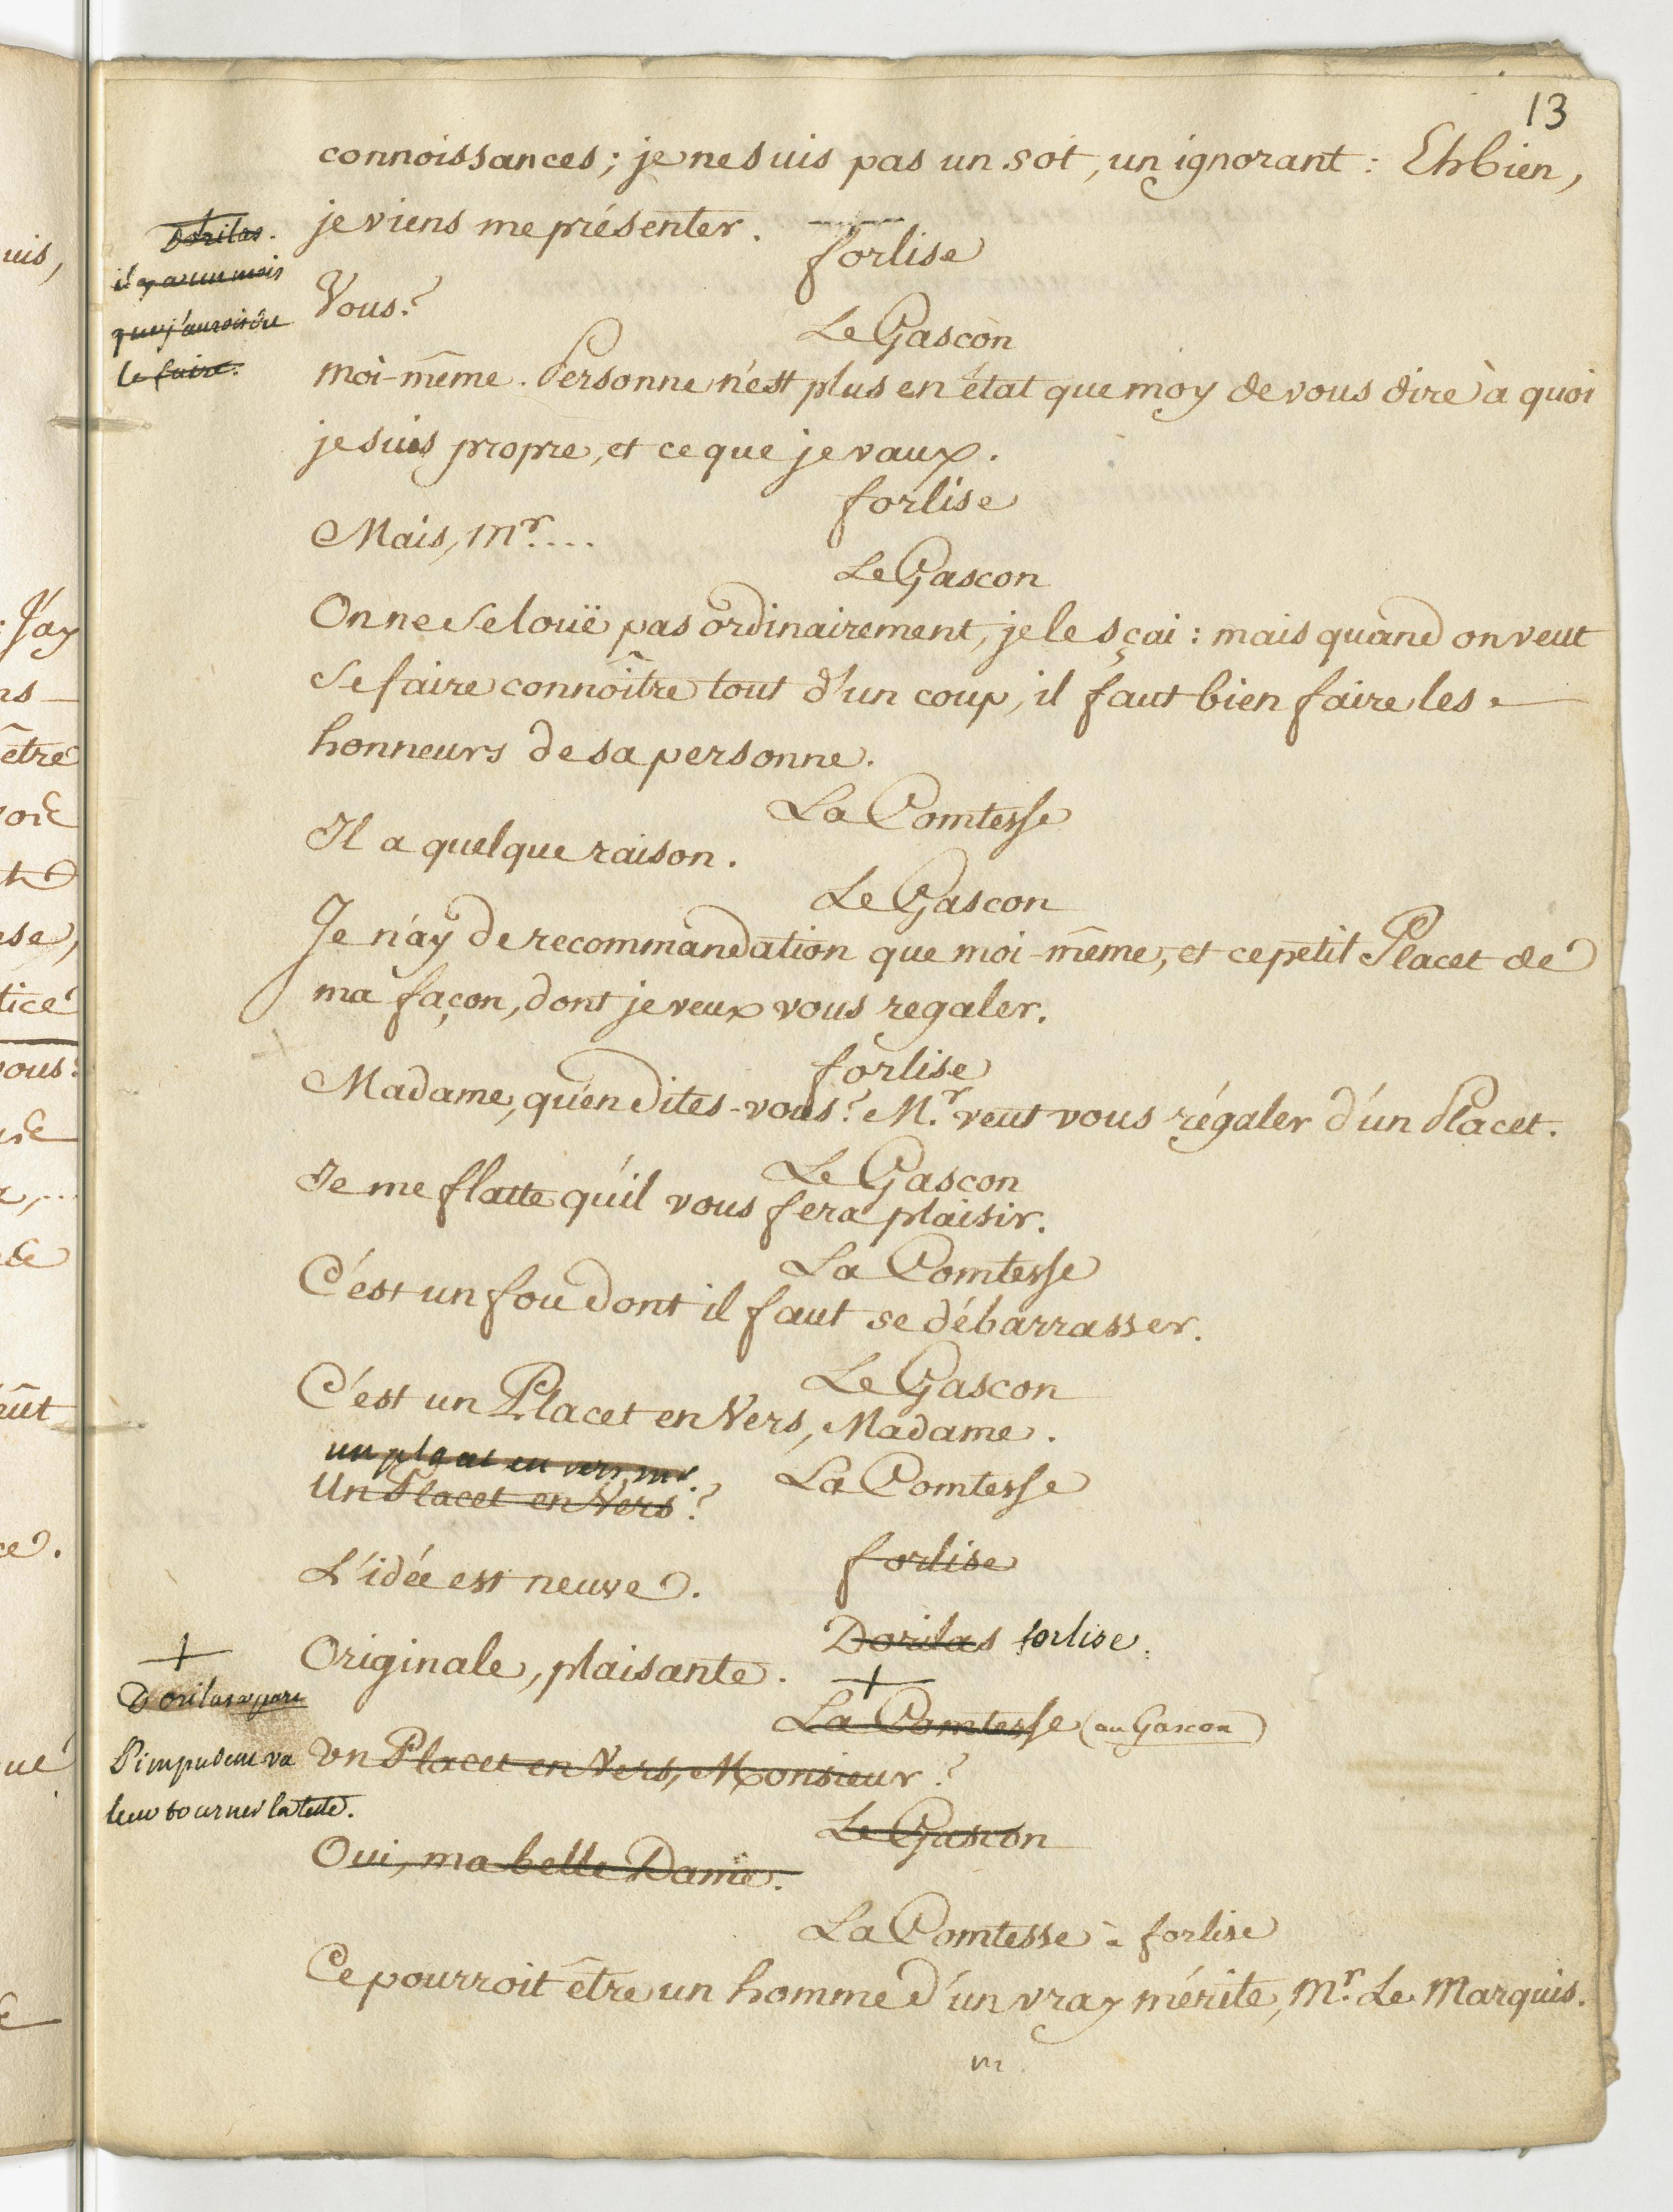 13
connoissances; je ne suis pas un sot, un ignorant : Eh bien,
je viens me présenter.
Dorilas.
il y a un mois
que j'aurois dû
le faire.
forlise
Vous?
Le Gascon
moi-même. Personne n'est plus en état que moy de vous dire à quoi
je suis propre, et ce que je vaux.
forlise
Mais, Mr....
Le Gascon
On ne se louë pas ordinairement, je le sçai : mais quand on veut
se faire connoître tout d'un coup, il faut bien faire les
honneurs de sa personne.
La Comtesse
Il a quelque raison.
Le Gascon
Je n'ay de recommandation que moi-même, et ce petit Placet de
ma façon, dont je veux vous regaler.
forlise
Madame, qu'en dites-vous? Mr. veut vous régaler d'un Placet.
Le Gascon
Je me flatte qu'il vous fera plaisir.
La Comtesse
C'est un fou dont il faut se débarrasser.
Le Gascon
C'est un Placet en Vers, Madame.
La Comtesse
un placet en vers, mr.
Un Placet en Vers?
forlise
L'idée est neuve.
Dorilas forlise.
Originale, plaisante.
+
+
Dorilas a part
l'impudent va
leur tourner la tete.
La Comtesse (au Gascon)
Un Placet en Vers, Monsieur?
Le Gascon
Oui, ma belle Dame.
La Comtesse à forlise
Ce pourroit être un homme d'un vray mérite, Mr. Le Marquis.
uis,
: J'ay
ns
être
ice
vous?
ût
ce.
ué